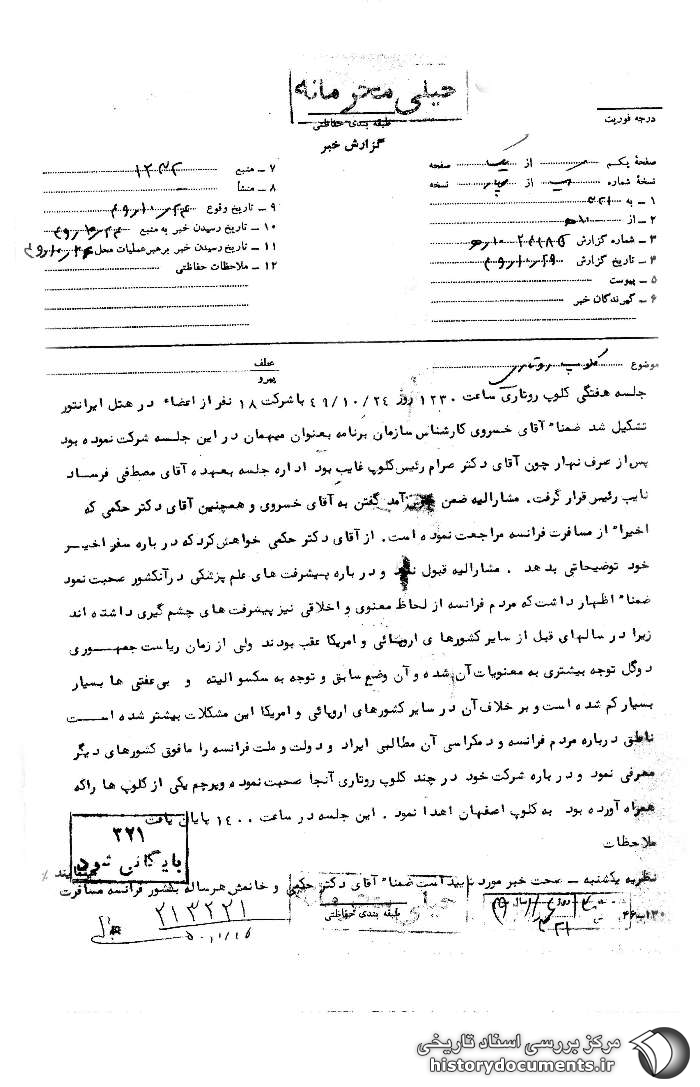 خیلی محرمانه
طبقه بندی حفاظتی
گزارش خبر
درجه فوریت
صفحهٔ یکم از یک صفحه
نسخهٔ شماره از چهار نسخه
۱ ـ به ۳۲۱
۲ ـ از ۱۰ ه
۳ ـ شماره گزارش
۴ ـ تاریخ گزارش
۵ ـ پیوست
۶ ـ گیرندگان خبر
۷ ـ منبع ۱۲۳۲
۸ ـ منشأ
۹ ـ تاریخ وقوع
۱۰ ـ تاریخ رسیدن خبر به منبع
۱۱ ـ تاریخ رسیدن خبر برهبر عملیات محل
۱۲ ـ ملاحظات حفاظتی
موضوع کلوپ روتاری
عطف
پیرو
جلسه هفتگی کلوپ روتاری ساعت ۱۲۳۰ روز ۴۹/۱۰/۲۴ با شرکت ۱۸ نفر از اعضاء در هتل ایرانتور
تشکیل شد ضمناً آقای خسروی کارشناس سازمان برنامه بعنوان میهمان در این جلسه شرکت نموده بود
پس از صرف نهار چون آقای دکتر صرام رئیس کلوپ غایب بود اداره جلسه بعهده آقای مصطفی فرساد
نایب رئیس قرار گرفت. مشارالیه ضمن خوش آمد گفتن به آقای خسروی و همچنین آقای دکتر حکمی که
اخیراً از مسافرت فرانسه مراجعت نموده است. از آقای دکتر حکمی خواهش کرد که در باره سفر اخیر
خود توضیحاتی بدهد . مشارالیه قبول نمود و در باره پیشرفت های علم پزشکی در آنکشور صحبت نمود
ضمناً اظهار داشت که مردم فرانسه از لحاظ معنوی و اخلاقی نیز پیشرفت های چشم گیری داشته اند
زیرا در سالهای قبل از سایر کشورها ی اروپائی و امریکا عقب بودند ولی از زمان ریاست جمهوری
دوگل توجه بیشتری به معنویات آن شده و آن وضع سابق و توجه به سکسوالیته و بی عفتی ها بسیار
بسیار کم شده است و بر خلاف آن در سایر کشورهای اروپائی و امریکا این مشکلات بیشتر شده است
ناطق درباره مردم فرانسه و دمکراسی آن مطالبی ایراد و دولت و ملت فرانسه را مافوق کشورهای دیگر
معرفی نمود و در باره شرکت خود در چند کلوپ روتاری آنجا صحبت نموده و پرچم یکی از کلوپ ها را که
همراه آورده بود به کلوپ اصفهان اهدا نمود . این جلسه در ساعت ۱۴۰۰ پایان یافت
ملاحظات
۳۲۱
بایگانی شود
نظریه یکشنبه ـ صحت خبر مورد تایید است ضمناً آقای دکتر حکمی و خانمش هر ساله بکشور فرانسه مسافرت
مینمایند
طبقه بندی حفاظتی
۲۱۳۲۲۱
۳۲۱
مرکز بررسی اسناد تاریخی
historydocuments.ir